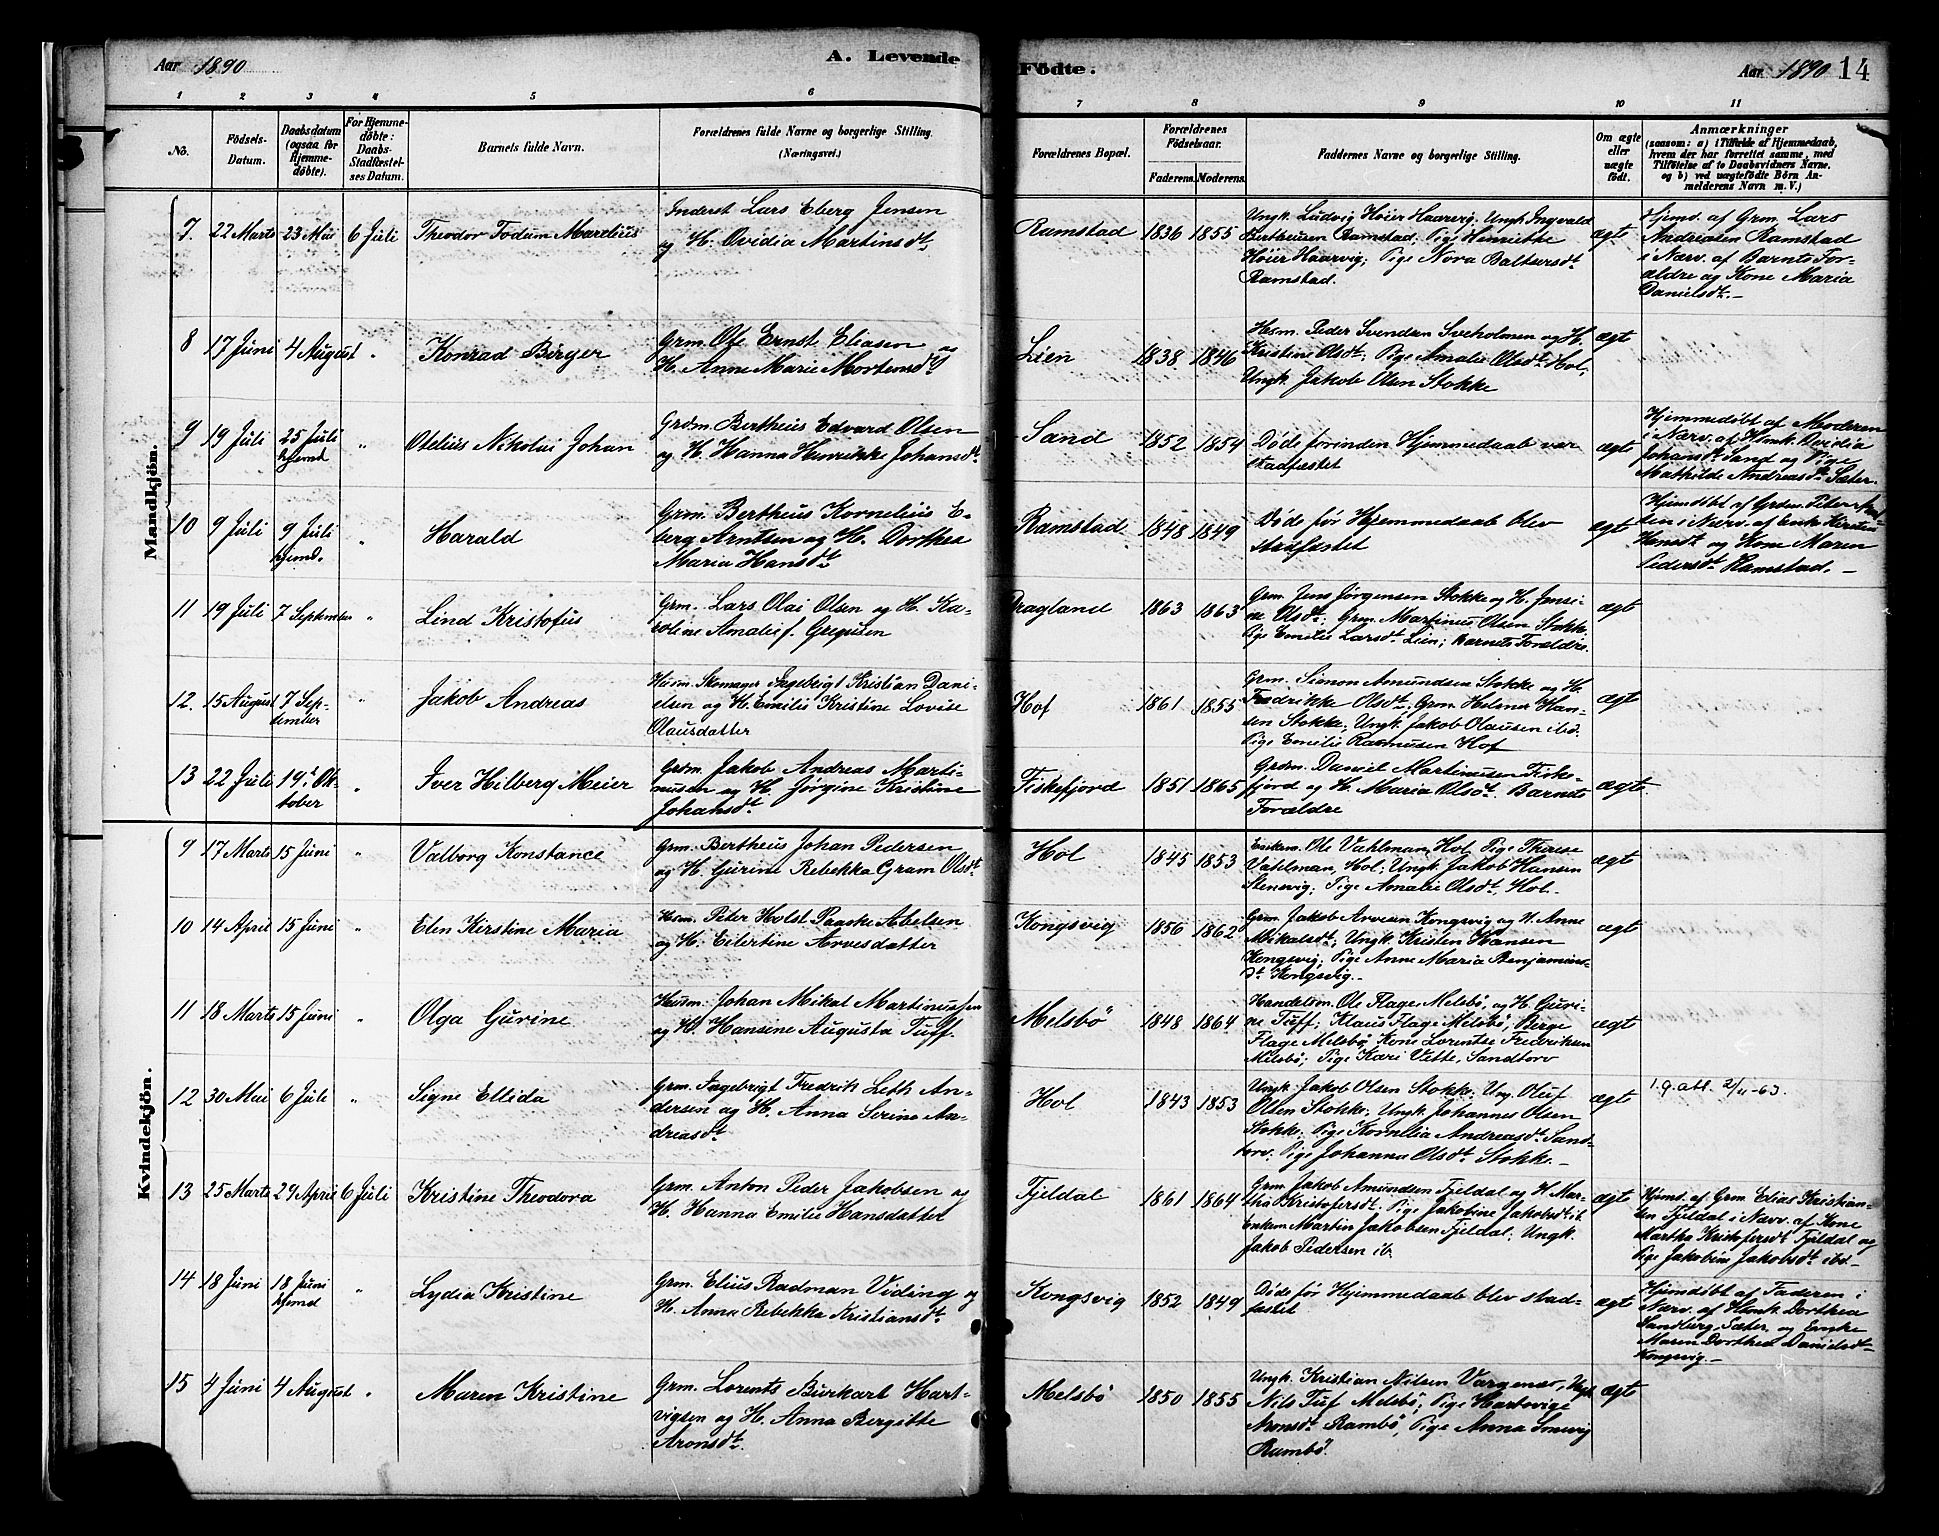 Aar 1890
A. Levende
Födte.
Aar 1890 14
1 2 3 4 5 6 7 8 9 10 11
No.
Födsels-
Datum.
Daabsdatum
(ogsaa for
Hjemme-
døbte).
For Hjemme-
døbte:
Daabs-
Stadfæstel-
ses Datum.
Barnets fulde Navn.
Forældrenes fulde Navne og borgerlige Stilling.
(Næringsvei.)
Forældrenes Bopæl.
Forældrenes
Fødselsaar.
Faderens. Moderens.
Faddernes Navne og borgerlige Stilling.
Om ægte
eller
uægte
født.
Anmærkninger
(saasom: a) i Tilfælde af Hjemmedaab,
hvem der har forrettet samme, med
Tilføielse af to Daabsvidners Navne,
og b) ved uægtefødte Børn An-
melderens Navn m. V.)
Mandkjön.
7. 22 Marts 23 Mai 6 Juli Theodor Todum Marelius
Inderst Lars Eberg Jensen
og H. Ovidia Martinsdt.
Ramstad 1836 1855
Ungk. Ludvig Høier Haarvig, Ungk. Ingvald
Bertheusen Ramstad. Pige Henriette
Høier Haarvig; Pige Nora Baltsersdt.
Ramstad.
ægte
Hjemd. af Grm. Lars
Andreasen Ramstad
i Nærv. af Barnets For-
ældre og Kone Maria
Danielsdt. —
8 17 Juni 4 August " Konrad Birger
Grm. Ole Ernst Eliasen og
H. Anne Marie Mortensdt.
Lien 1838 1846
Hsm. Peder Svendsen Sveholmen og H.
Kristine Olsdt; Pige Amalie Olsdt. Hol,
Ungk. Jakob Olsen Stokke
ægte
9 19 Juli 25 Juli
hjemd " Otelius Nikolai Johan
Grdm. Bertheus Edvard Olsen
og H. Hanna Henrikke Johansdt.
Sand 1852 1854
Døde forinden Hjemmedaab var
stadfæstet
ægte
Hjemmedøbt af Moderen
i Nærv. af Ovidia
Johansdt. Sand og Pige
Mathilde Andreasdt. Sæter.
10 9 Juli 9 Juli
hjemd. " Harald
Grm. Bertheus Kornelius E-
berg Arntsen og H. Dorthea
Maria Hansdt.
Ramstad. 1848 1849
Døde før Hjemmedaab blev
stadfæstet
ægte
Hjemdøbt af Grdm. Peter
i Nærv. af Enke Kirstine
Hansdt. og Kone Maren
Pedersdt. Ramstad. —
11 19 Juli 7 September " Lind Kristofus
Grm. Lars Olai Olsen og H. Ka-
roline Amalie f. Gregusen
Dragland 1863 1863
Grm. Jens Jørgensen Stokke og H. Jensi-
ne Olsdt; Grm. Martinus Olsen Stokke.
Pige Emilie Larsdt. Lien; Barnets Forældre.
ægte
12. 15 August 7 Sep-
tember " Jakob Andreas
Husm. Skomager Ingebrigt Kristian Dani-
elsen og H. Emilie Kristine Lovise
Olausdatter
Hof 1861 1855
Grm. Simon Amundsen Stokke og H.
Fredrikke Olsdt; Grm. Helmer Han-
sen Stokke; Ungk. Jakob Olausen ibd.
Pige Emilie Rasmusen Hof
ægte
13 22 Juli 19. Ok-
tober " Iver Hilberg Meier
Grdm. Jakob Andreas Marti-
nusen og H. Jørgine Kristine
Johansdt.
Fiskefjord 1851 1865
Grdm. Daniel Martinusen Fiske-
fjord og H. Maria Olsdt. Barnets
Forældre
ægte.
Kvindekjön.
9 17 Marts 15 Juni " Valborg Konstance
Grm. Bertheus Johan Pedersen
og H. Gurine Rebekka Gram Olsdt.
Hol 1845 1853
Enkem. Ole Vahlman, Hol, Pige Therese
Vahlman, Hol; Ungk. Jakob Hansen
Stensvig; Pige Amalie Olsdt. Hol.
ægte
10 14 April 15 Juni " Elen Kerstine Maria
Husm. Peter Holst Paaske Abelsen
og H. Eilertine Arvesdatter
Kongsvig 1856 1862
Grm. Jakob Arvesen Kongsvig og H. Anne
Mikalsdt; Ungk. Kristen Hansen
Kongsvig; Pige Anne Maria Benjamins-
dt. Kongsvig. —
ægte
11 18 Marts 15 Juni " Olga Gurine
Husm. Johan Mikal Martinussen
og H. Hansine Augusta Tuff.
Melsbö 1848 1864
Handelsm. Ole Flage, Melsbö, og H. Guri-
ne Tuff; Klaus Flage Melsbö; Berge
Flage Melsbö; Kone Lorentse Fredriksen
Melsbö; Pige Kari Vette, Sandtorv
ægte
12 30 Mai 6 Juli " Signe Ellida
Grm. Ingebrigt Fredrik Leth An-
dersen og H. Anna Serine An-
dreasdt.
Hol 1843 1853
Ungk. Jakob Olsen Stokke; Ung. Oluf
Olsen Stokke; Ungk. Johannes Olsen
Stokke; Pige Kornelia Andreasdt. Sand-
torv. Pige Johanna Olsdt. Stokke. —
ægte
1.g.att. 2/11-63.
13 25 Marts 29 April 6 Juli Kristine Theodora
Grm. Anton Peder Jakobsen og
H. Hanna Emilie Hansdatter
Fjeldal 1861 1864
Grm. Jakob Amundsen Fjeldal og H. Mar-
tha Kristofersdt. Pige Jakobine Jakobsdt ib.
Enkem. Martin Jakobsen Fjeldal; Ungk.
Jakob Pedersen ib.
ægte
Hjemd. af Grm. Elias Kristian-
sen Fjeldal i Nærv. af Kone
Martha Kristofersdt. Fjeldal og
Pige Jakobine Jakobsdt. ibd —
14 18 Juni 18 Juni
hjemd " Lydia Kristine
Grm. Elius Radman Viding og
H. Anna Rebekka Kristiansdt.
Kongsvig 1852 1849
Døde før Hjemmedaab blev stad-
fæstet
ægte
Hjemdøbt af Faderen i
Nærv. af Dorthea
Sandberg, Sæter, og Enke
Maren Dorthea Danielsdt.
Kongsvig. —
15 4 Juni 4 August " Maren Kristine
Grm. Lorents Burkart Hart-
vigsen og H. Anna Bergitte
Aronsdt.
Melsbö 1850 1855
Ungk. Kristian Nilsen Vargenæs, Ungk.
Nils Tuf Melsbö; Pige Hartvige
Aronsdt. Rambö, Pige Anna
Rambö.
ægte